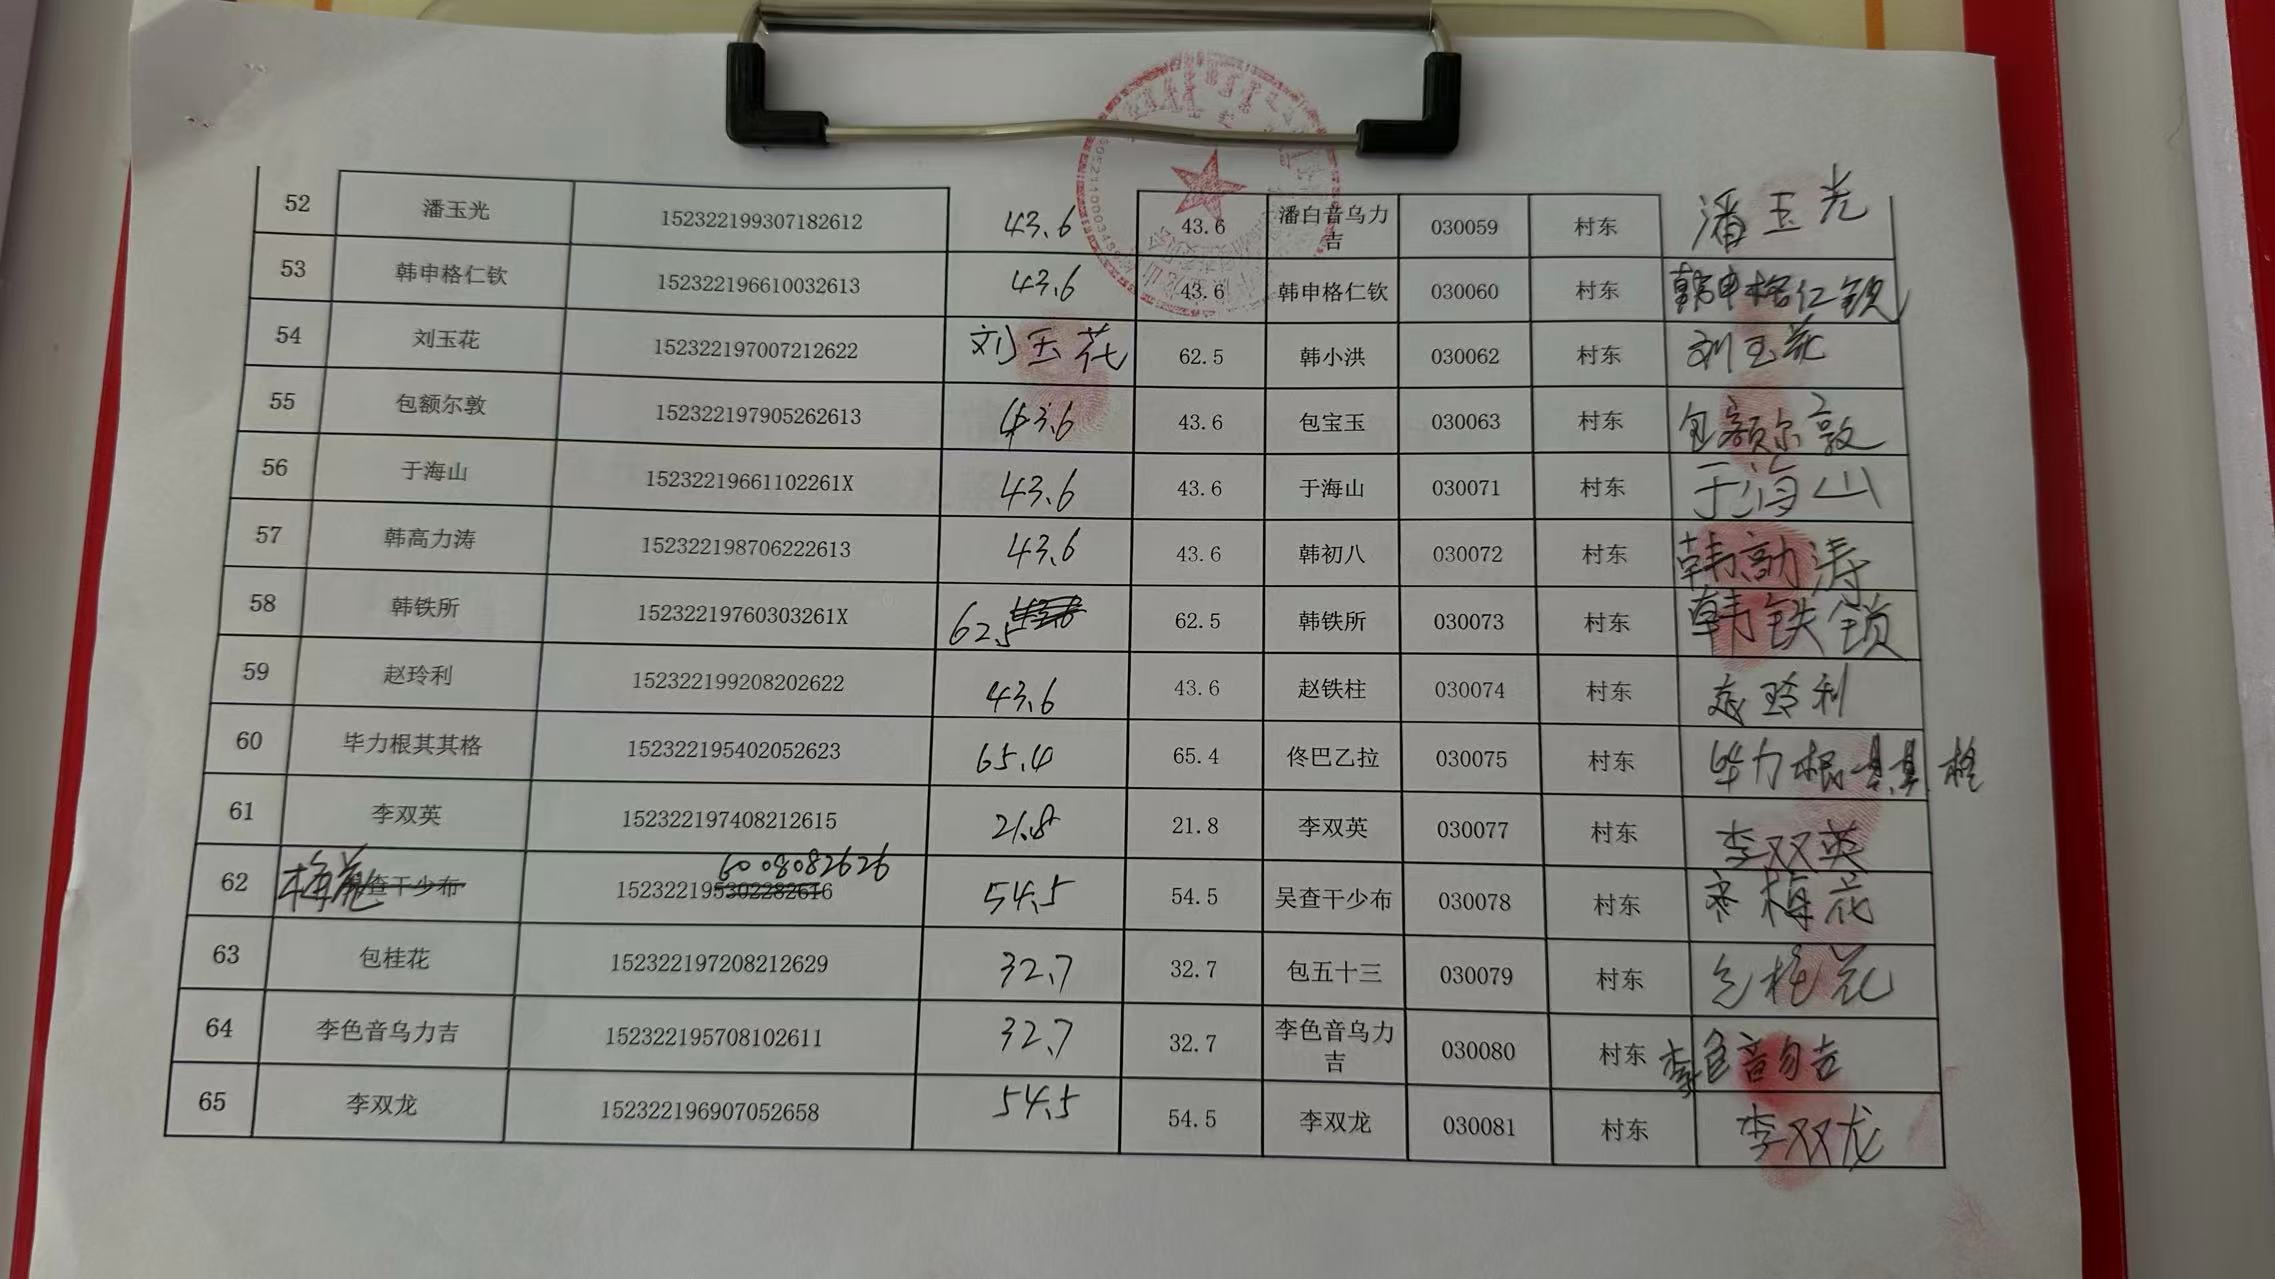 52 潘玉光 152322199307182612 43.6 43.6 潘白音乌力吉 030059 村东 潘玉光
53 韩申格仁钦 152322196610032613 43.6 43.6 韩申格仁钦 030060 村东 韩申格仁钦
54 刘玉花 152322197007212622 刘玉花 62.5 韩小洪 030062 村东 刘玉花
55 包额尔敦 152322197905262613 43.6 43.6 包宝玉 030063 村东 包额尔敦
56 于海山 15232219661102261X 43.6 43.6 于海山 030071 村东 于海山
57 韩高力涛 152322198706222613 43.6 43.6 韩初八 030072 村东 韩高力涛
58 韩铁所 15232219760303261X 62.5 62.5 韩铁所 030073 村东 韩铁锁
59 赵玲利 152322199208202622 43.6 43.6 赵铁柱 030074 村东 赵玲利
60 毕力根其其格 152322195402052623 65.4 65.4 佟巴乙拉 030075 村东 毕力根其其格
61 李双英 152322197408212615 21.8 21.8 李双英 030077 村东 李双英
6008082626
62 梅花 查干少布 152322195302282616 54.5 54.5 吴查干少布 030078 村东 梅花
63 包桂花 152322197208212629 32.7 32.7 包五十三 030079 村东 包桂花
64 李色音乌力吉 152322195708102611 32.7 32.7 李色音乌力吉 030080 村东 李色音乌吉
65 李双龙 152322196907052658 54.5 54.5 李双龙 030081 村东 李双龙